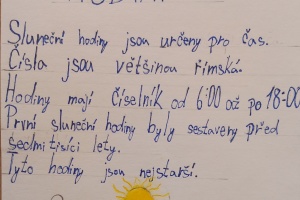 Sluneční hodiny jsou určeny pro čas.
Čísla jsou většinou římská.
Hodiny mají číselník od 6:00 až po 18:00
První sluneční hodiny byly sestaveny před
sedmi tisíci lety.
Tyto hodiny jsou nejstarší.